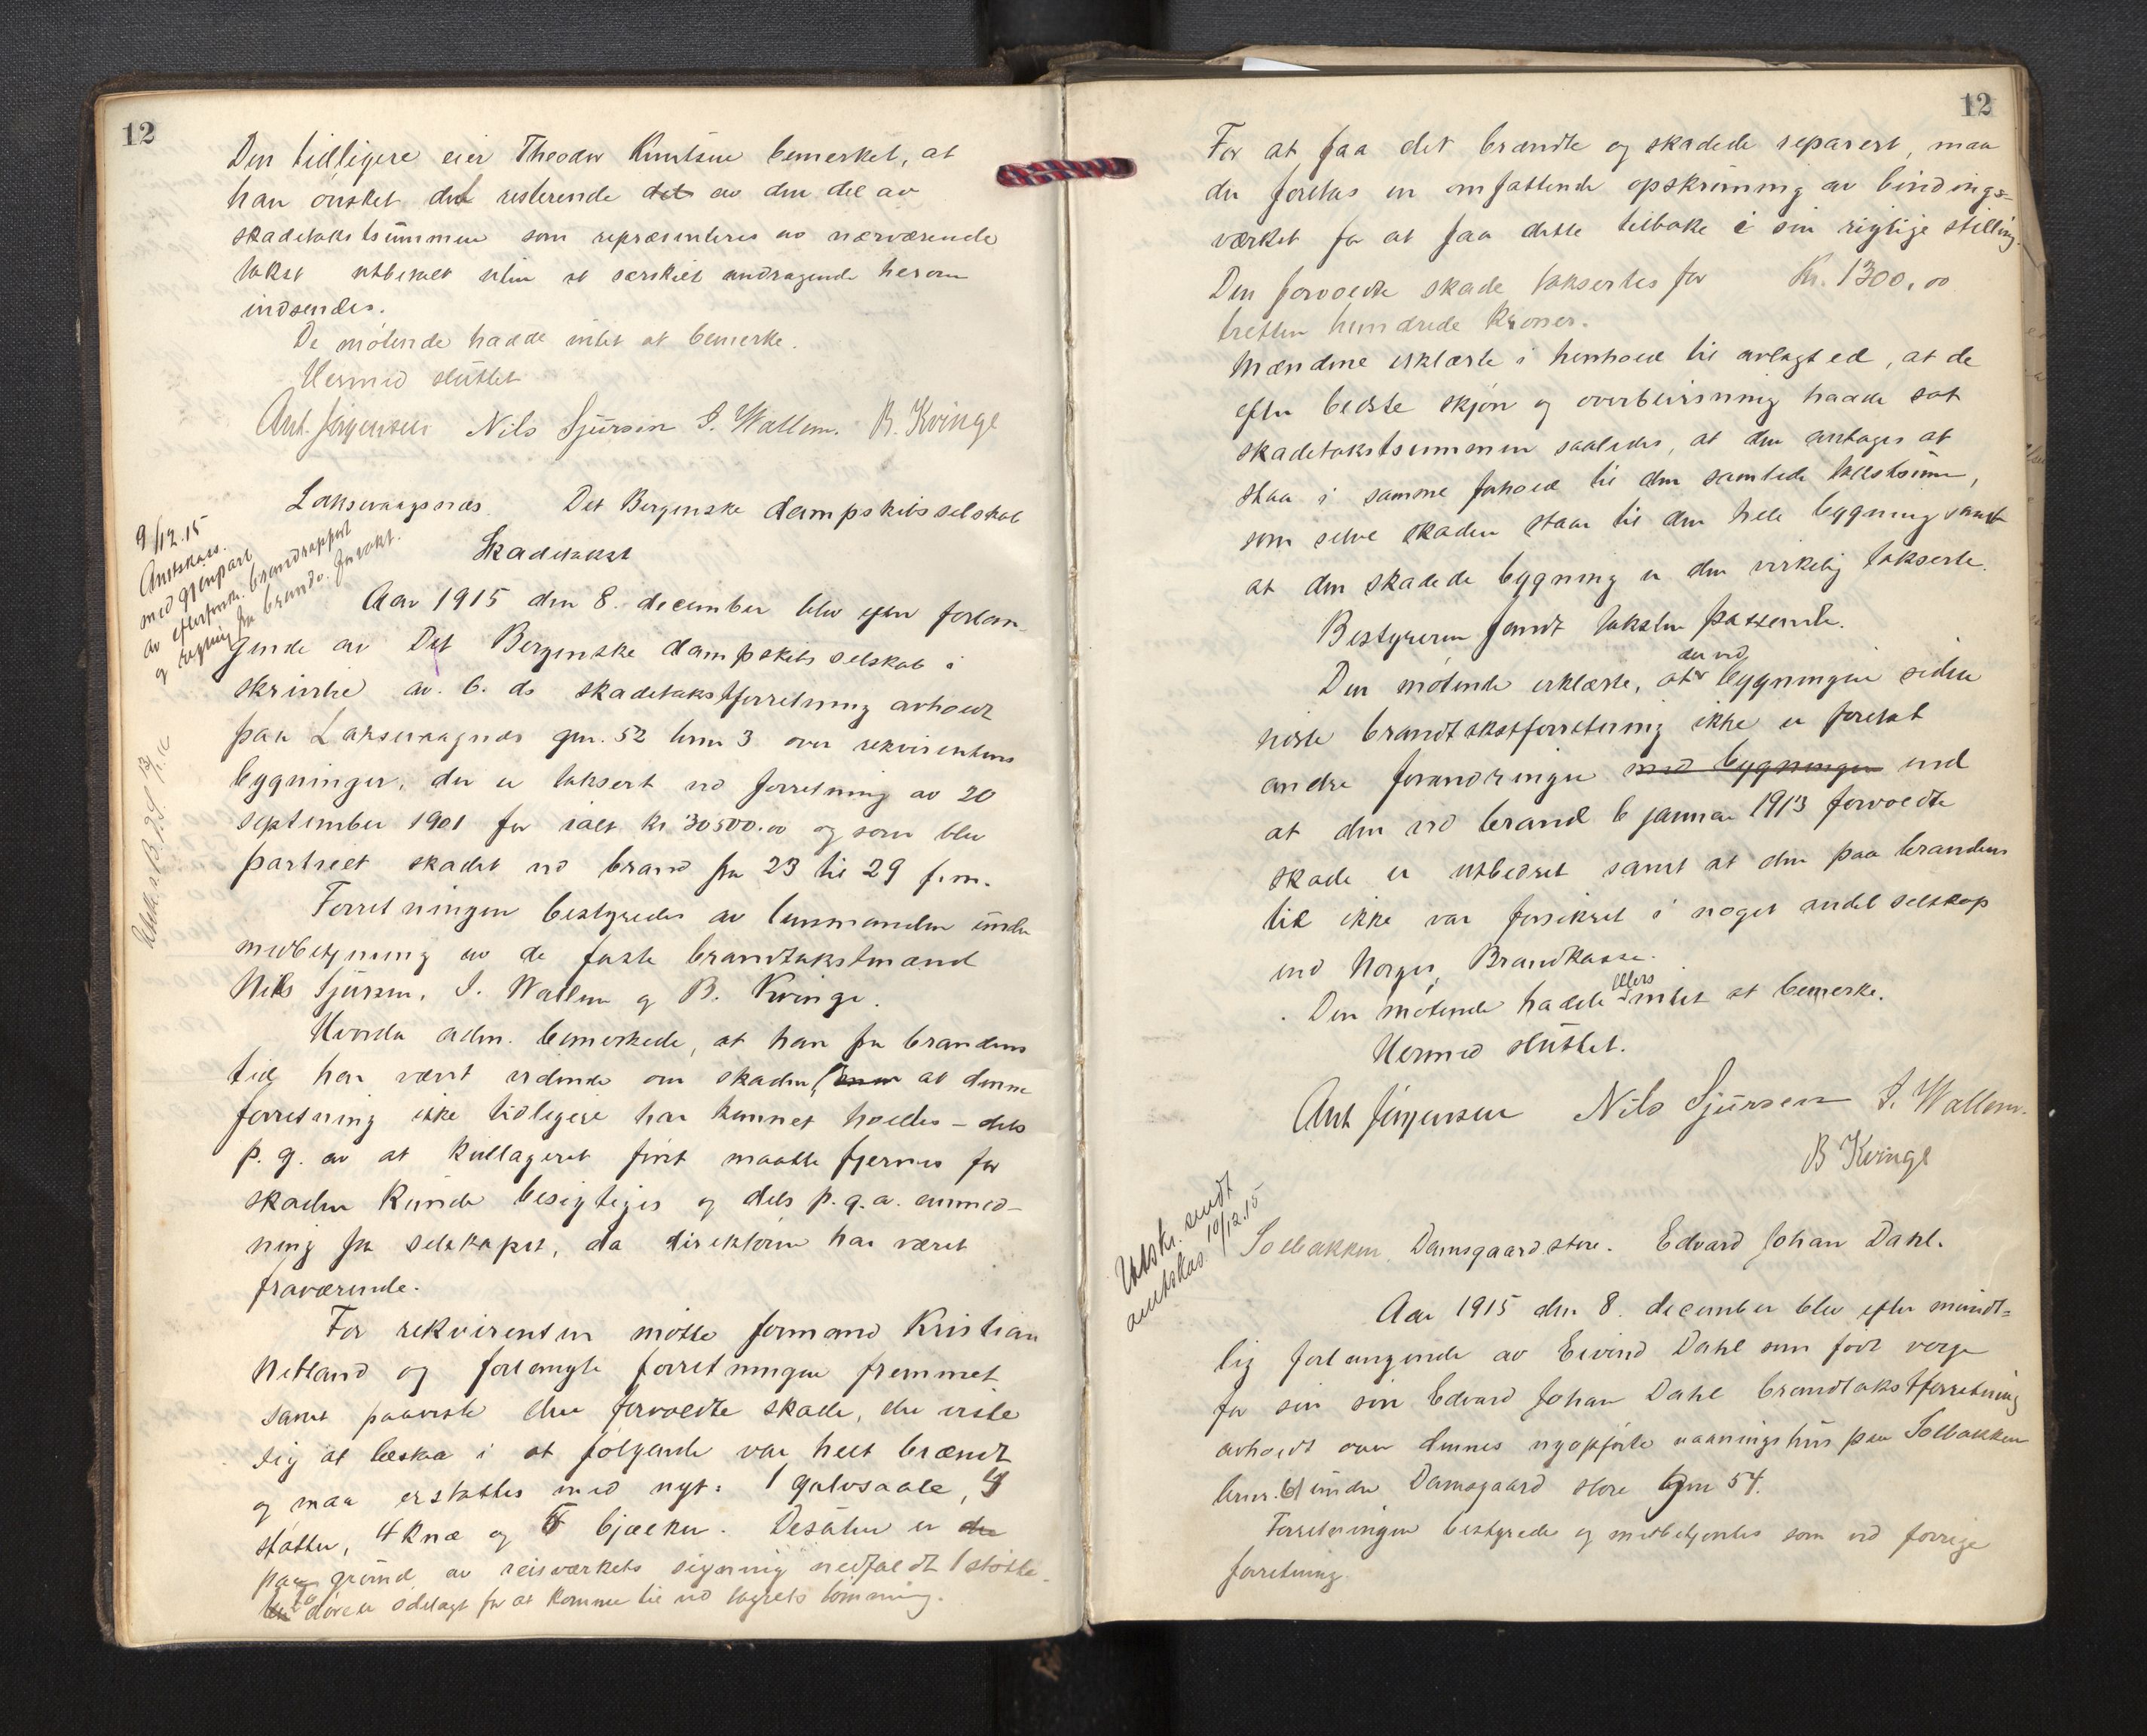 12
Den tidligere eier Theodor Knutsen bemerket, at
han ønsket det resterende det av den del av
skadetakstsummen som repræsenteres av nærværende
takst utbetalt uten at særskilt andragende herom
indsendes.
De møtende hadde intet at bemerke.
Hermed sluttet
Ant. Jørgensen Nils Sjursen I. Wallem. B. Kvinge
Laksevaagsnæs. Det Bergenske dampskibsselskab
Skadetakst
9/12.15
Amtskass.
med gjenpart
av efterforskn. brandrapport
og regning fra
Aar 1915 den 8. december blev efter forlan-
gende av Det Bergenske dampskibsselskab i
skrivelse av 6. ds skadetakstforretning avholdt
paa Laksevaagnæs gnr. 52 brnr 3 over rekvirentens
bygninger, der er taksert ved forretning av 20
september 1901 for ialt kr 30500.00 og som blev
partielt skadet ved brand fra 23 til 29 f.m.
Forretningen bestyredes av lensmanden under
medbetjening av de faste brandtakstmænd
Nils Sjursen, I. Wallem og B. Kvinge.
adm. bemerkede, at han fra brandens
tid har været vidende om skaden, men at denne
forretning ikke tidligere har kunnet holdes – dels
p. g. av at kullageret først maatte fjernes før
skaden kunde besigtiges og dels p. g. a. anmod-
ning fra selskapet, da direktøren har været
fraværende.
For rekvirenten møtte formand Kristian
Netland og forlangte forretningen fremmet
samt paaviste den forvoldte skade, der viste
sig at bestaa i at følgende var helt brændt
og maa erstattes med nyt: 1 gulvsaale, 4
støtter, 4 knæ og 5 bjælker. Desuten er der
paa grund av reisverkets signing nedfaldt 1 støtte.
døren ødelagt for at komme til ved lagrets tømning.
12
For at faa det brændte og skadede reparert, maa
der foretas en omfattende opskruning av bindings-
verket for at faa dette tilbake i sin rigtige stilling.
Den forvoldte skade taksertes for Kr. 1300,00
tretten hundrede kroner.
Mændene erklærte i henhold til avlagt ed, at de
efter bedste skjøn og overbevisning hadde sat
skadetakstsummen saaledes, at den antages at
staa i samme forhold til den samlede takstsum,
som selve skaden staar til den hele bygning samt
at den skadede bygning er den virkelig takserte.
Bestyreren fandt taksten passende.
Den møtende erklærte, at der ved bygningen siden
sidste brandtakstforretning ikke er foretat
andre forandringer med bygningen end
at den ved brand 6 januar 1913 forvoldte
skade er utbedret samt at den paa brandens
tid ikke var forsikret i noget andet selskap
end Norges Brandkasse.
Den møtende hadde ellers intet at bemerke.
Hermed sluttet.
Ant Jørgensen Nils Sjursen I. Wallem.
B Kvinge
Utskr. sendt
amtskas. 10/12.15
Solbakken, Damsgaard store. Edvard Johan Dahl.
Aar 1915 den 8. december blev efter mundt-
lig forlangende av Eivind Dahl som født verge
for sin søn Edvard Johan Dahl brandtakstforretning
avholdt over dennes nyopførte vaaningshus paa Solbakken
brnr. 61 under Damsgaard store gnr 54.
Forretningen bestyredes og medbetjentes som ved forrige
forretning.